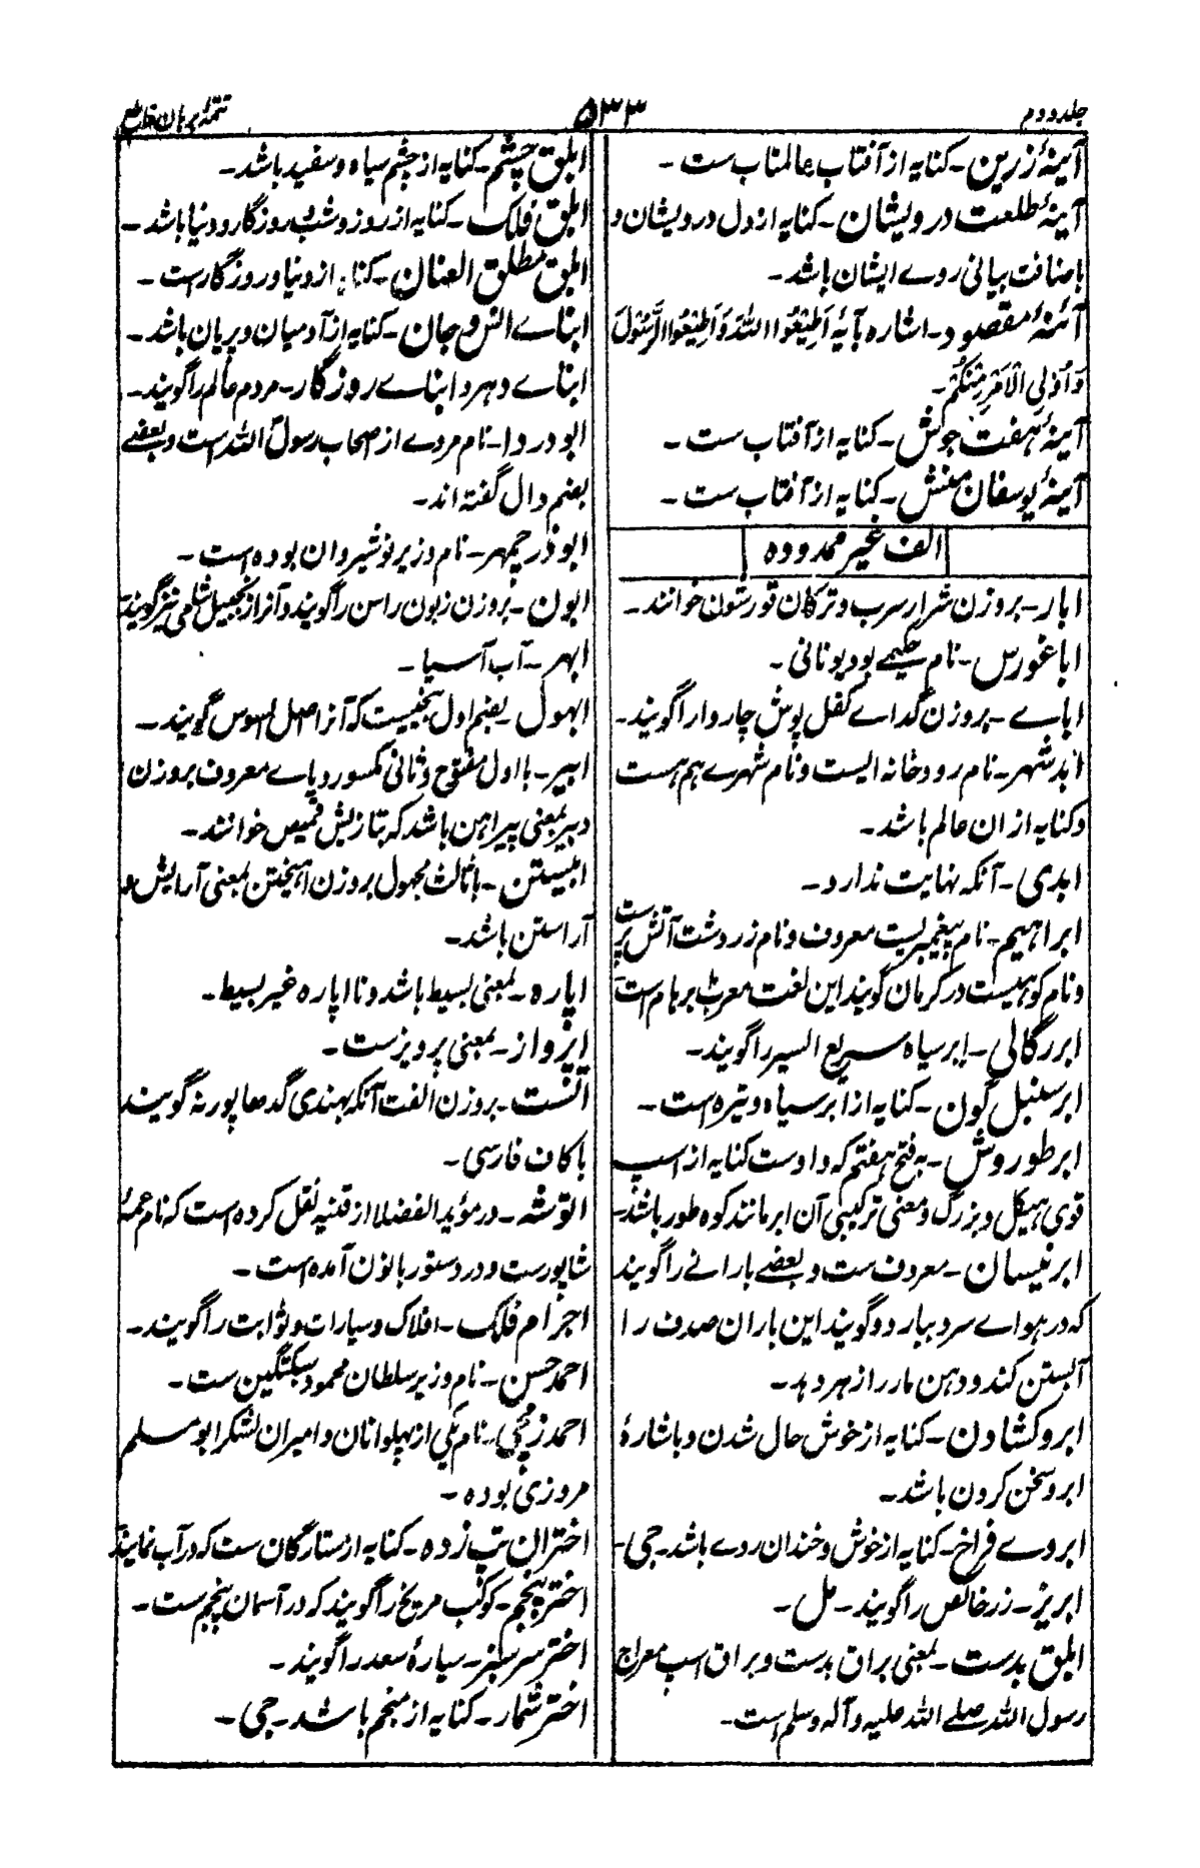 جلد دوم
۵۳۳
تتمهٔ برهان قاطع
آیینهٔ زرین - کنایه از آفتاب عالمتاب ست -
آیینهٔ طلعت درویشان - کنایه از دل درویشان و
باضافت بیانی روے ایشان باشد -
آئنهٔ مقصود - اشاره بآیهٔ اَطِیْعُوا اللّٰهَ وَاَطِیْعُوا الرَّسُوْلَ
وَاُولِی الْاَمْرِ مِنْکُمْ -
آیینهٔ هفت جوش - کنایه از آفتاب ست -
آیینهٔ یوسفان منش - کنایه از آفتاب ست -
الف غیر ممدوده
ابار - بروزن شرار سرب و ترکان قورشون خوانند -
اباغورس - نام حکیمے بود یونانی -
اباے - بروزن گداے کفل پوش چاروا را گویند -
ابدشهر - نام رودخانه ایست و نام شهرے هم هست
و کنایه از ان عالم باشد -
ابدی - آنکه نهایت ندارد -
ابراهیم - نام پیغمبریست معروف و نام زردشت آتش پرست
و نام کوهیست در کرمان گویند این لغت معرب برهام است
ابر رگالی - ابر سیاه سریع السیر را گویند -
ابر سنبل گون - کنایه از ابر سیاه و تیره است -
ابر طوروش - بفتح هفتم که واوست کنایه از اسپ
قوی هیکل و بزرگ و معنی ترکیبی آن ابر مانند کوه طور باشد -
ابر نیسان - معروف ست و بعضے بارانے را گویند
که در هواے سرد ببارد و گویند این باران صدف را
آبستن کند و دهن مار را زهر دهد -
ابرو کشادن - کنایه از خوش حال شدن و باشارهٔ
ابرو سخن کردن باشد -
ابروے فراخ - کنایه از خوش و خندان روے باشد - جی -
ابریز - زر خالص را گویند - مل -
ابلق بدست - بمعنی براق بدست و براق اسپ معراج
رسول الله صلے الله علیه و آله و سلم است -
ابلق چشم - کنایه از چشم سیاه و سفید باشد -
ابلق فلک - کنایه از روز و شب و روزگار و دنیا باشد -
ابلق مطلق العنان - کنایه از دنیا و روزگار است -
ابناے انس و جان - کنایه از آدمیان و پریان باشد -
ابناے دهر و ابناے روزگار - مردم عالم را گویند -
ابودردا - نام مردے از اصحاب رسول الله است و بعضے
بضم دال گفته اند -
ابوذرجمهر - نام وزیر نوشیروان بوده است -
ابون - بروزن زبون راسن را گویند و آنرا زنجبیل شامی نیز گویند
ابهر - آب آسیا -
ابهول - بضم اول بیخیست که آنرا اصل السوس گویند -
ابیر - با اول مفتوح و ثانی مکسور و یاے معروف بروزن
دبیر بمعنی پیراهن باشد که بتازیش قمیص خوانند -
ابیستن - با ثالث مجهول بروزن اهیختن بمعنی آرایش و
آراستن باشد -
اپاره - بمعنی بسیط باشد و نا اپاره غیر بسیط -
اپرواز - بمعنی پرویز ست -
الشت - بروزن الفت آنکه بهندی گدها پورنه گویند
با کاف فارسی -
اتوشه - در مؤید الفضلا از قنیه نقل کرده است که نام عمهٔ
شاپورست و در دستور بانون آمده است -
اجرام فلک - افلاک و سیارات و ثوابت را گویند -
احمد حسن - نام وزیر سلطان محمود سبکتگین ست -
احمد زمجی - نام یکی از پهلوانان و امیران لشکر ابو مسلم
مروزی بوده -
اختران تب زده - کنایه از ستارگان ست که در آب نمایند
اختر پنجم - کوکب مریخ را گویند که در آسمان پنجم ست -
اختر سرسبز - سیارهٔ سعد را گویند -
اختر شمار - کنایه از منجم باشد - جی -